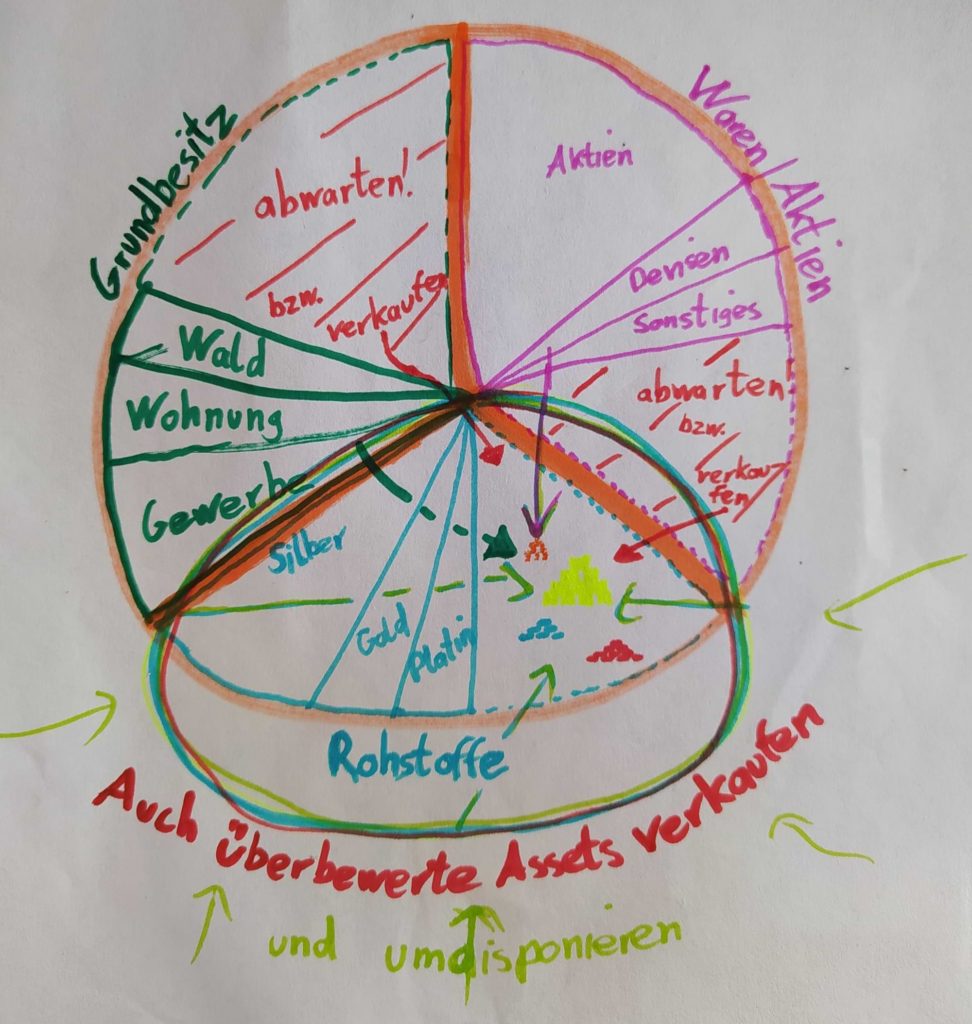 Grundbesitz
Waren/Aktien
abwarten!
bzw.
verkaufen
Wald
Wohnung
Gewerbe
Aktien
Devisen
Sonstiges
abwarten
bzw.
verkau-
fen
Silber
Gold
Platin
Rohstoffe
Auch überbewerte Assets verkaufen
und umdisponieren